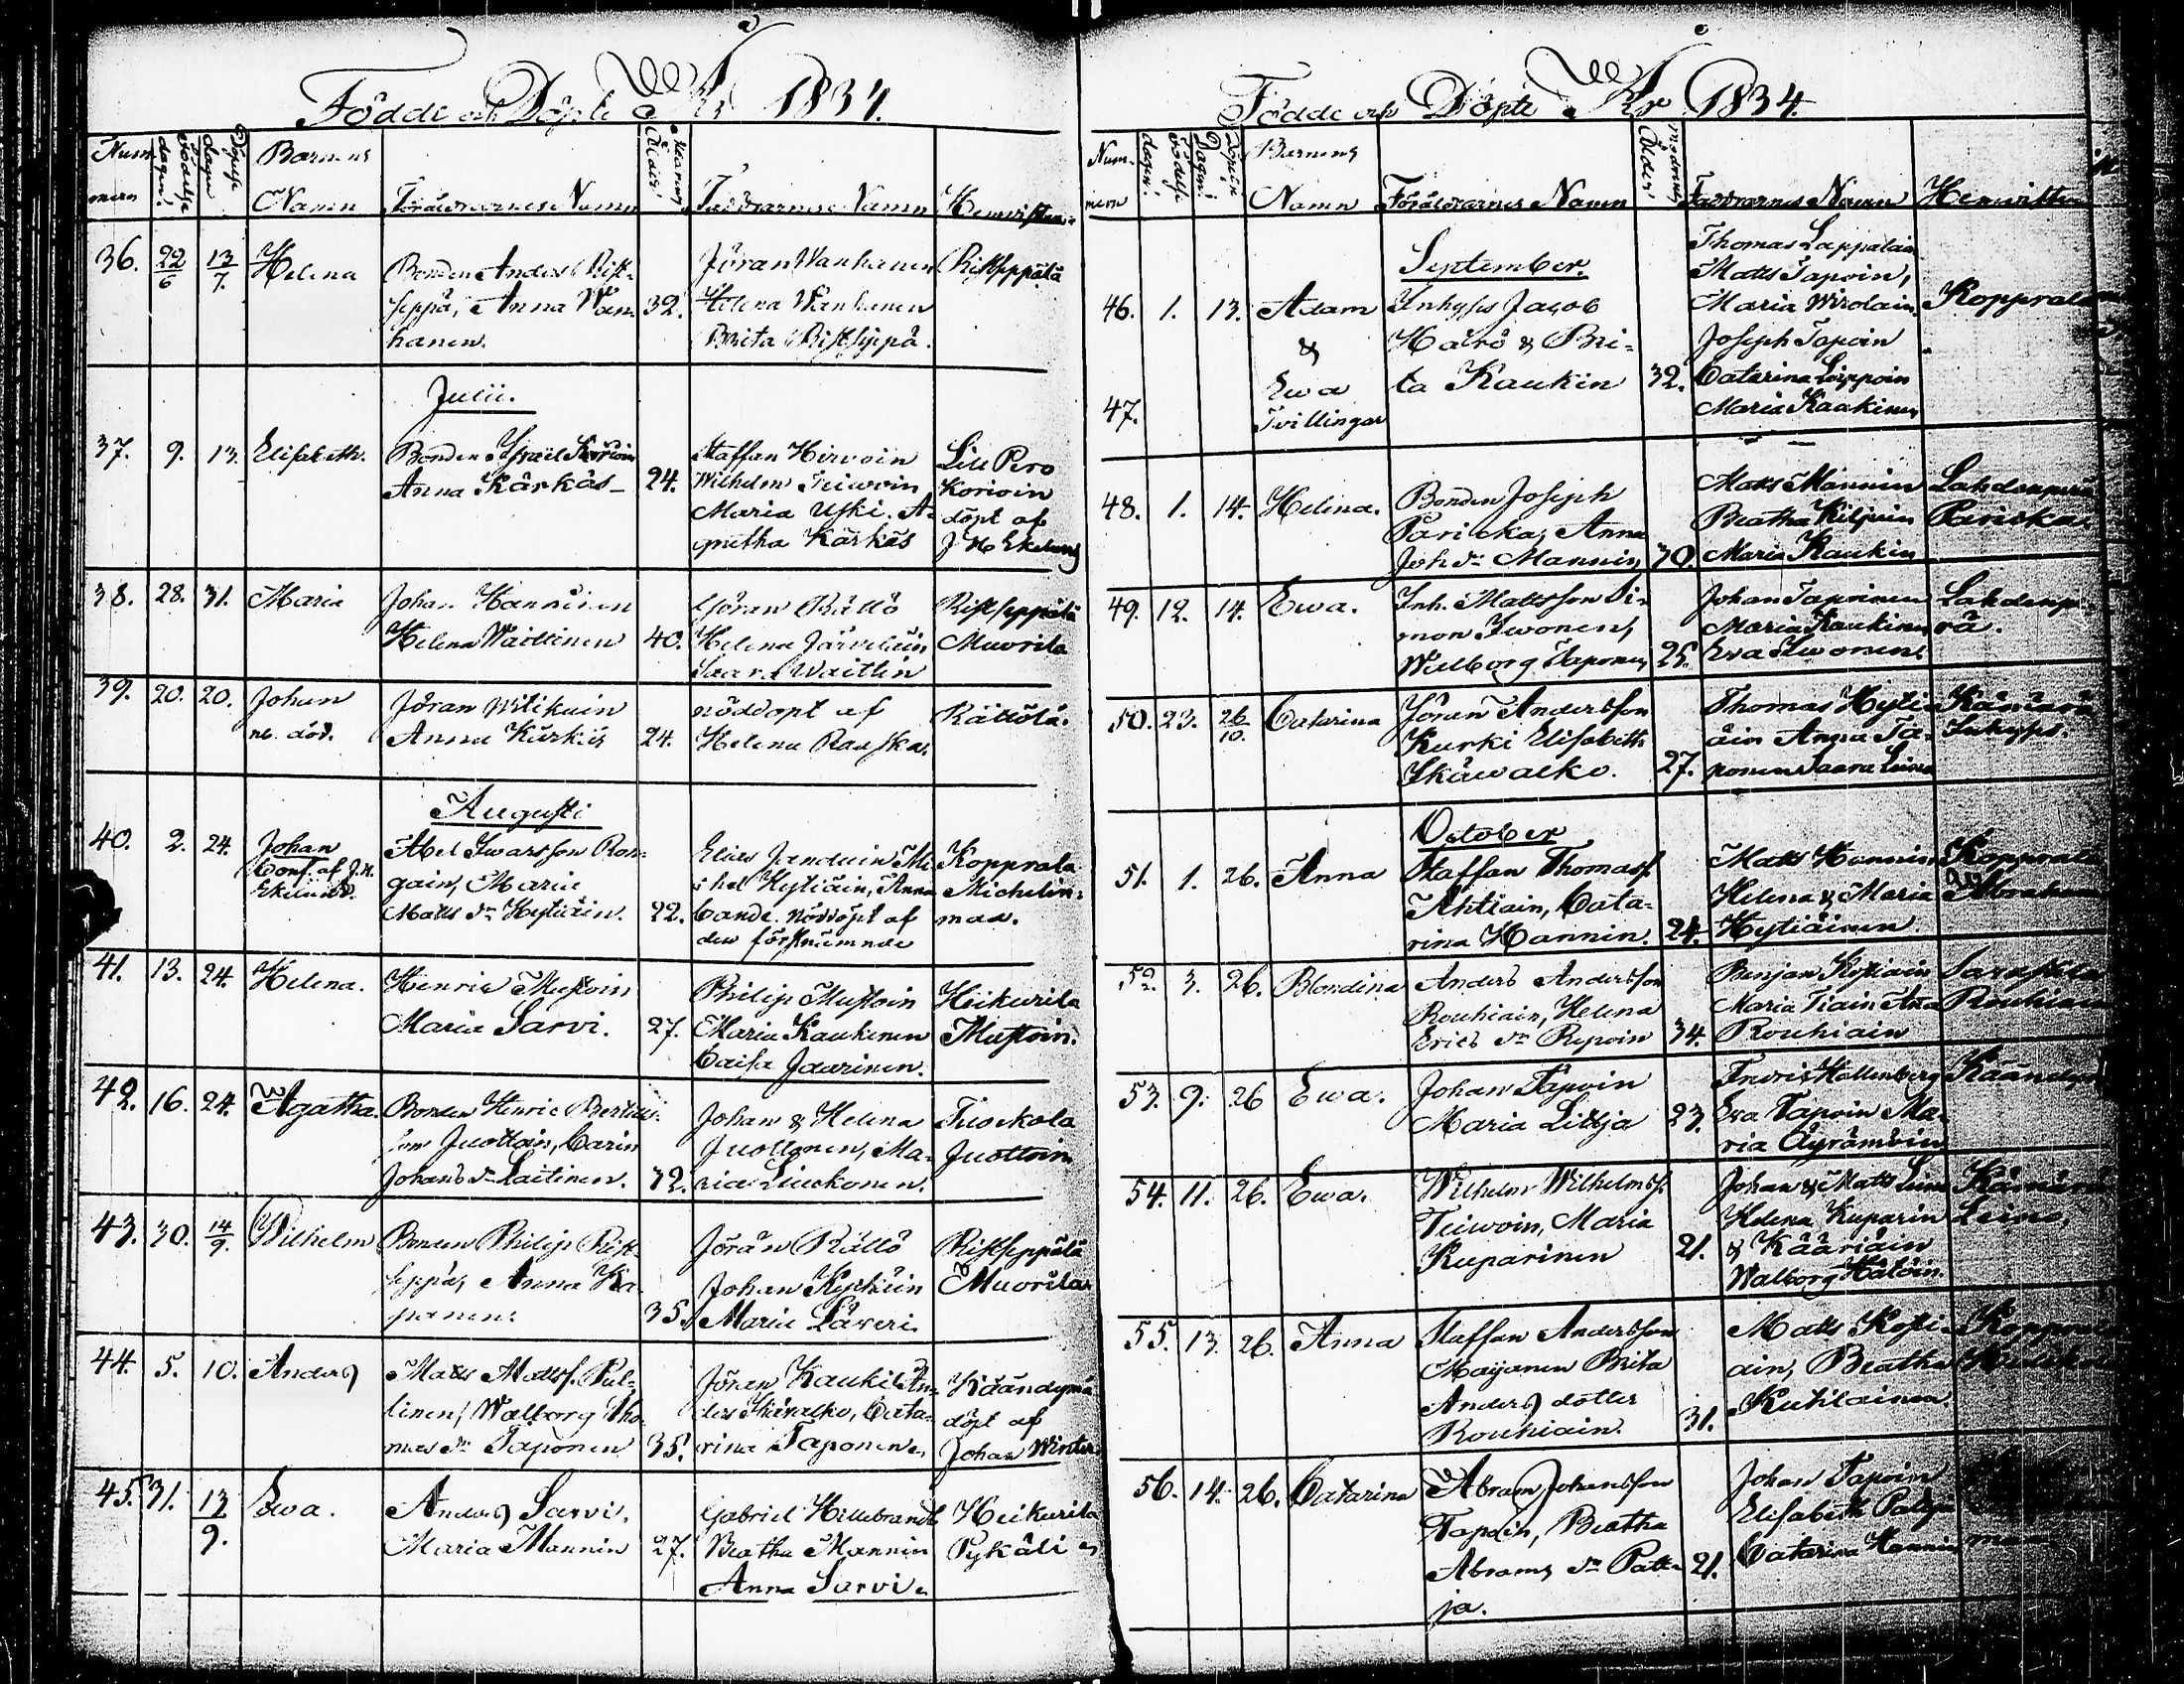 Födde och Döpte År 1834.
Num-
mern
Födelse
dagen
Döpelse
dagen
Barnens
Namn
Föräldrarnes Namn
Ålder
Faddrarnes Namn
Hemvisten
36. 22/6 13/7. Helena
Bonden Anders Rist-
seppä, Anna Wan-
hanen.
32.
Jöran Wanhanen
Helena Wanhanen
Brita Ristseppä.
Ristseppälä
Julii.
37. 9. 13. Elisabeth.
Bonden Israel
Anna Kärkäs
24.
Staffan Hirvoin
Wilhelm Teivoin
Maria Uski. A-
gnetha Kärkäs
Lill Pero
Korvoin
döpt af
J H Ekelund
38. 28. 31. Maria
Johan Hänninen
Helena Waittinen
40.
Göran Rättö
Helena Järveläin
Saara Waittin
Ristseppälä
Muorila
39. 20. 20. Johan
n. död.
Jöran Mitikain
Anna Kärkäs
24.
nöddöpt af
Helena Rauska.
Rättölä.
Augusti
40. 2. 24. Johan
Conf. af J. H.
Ekelund.
Abel Iwarsson Ron-
gain, Maria
Matts dr Hytiäin.
22.
Elias Janduin Mi-
chel Hytiäin, Anna
nöddöpt af
den förstnämnde
Kopprala
Michelin-
maa.
41. 13. 24. Helena.
Henric Mustoin
Maria Sarvi.
27.
Philip Mustoin
Maria Kaukinen
Caisa Jaarinen.
Heikurila
Mustoin.
42. 16. 24. Agatha.
Bonden Henric Bertils-
son Juottoin, Carin
Johans dr Laitinen.
32.
Johan & Helena
Juottonen, Ma-
ria Liuckonen.
Tiuockola
Juottoin
43. 30. 14/9. Wilhelm
Bonden Philip Rist-
seppä, Anna Ka-
panen.
35.
Jörän Rättö
Johan Kythiin
Maria Läveri
Ristseppälä
Muorila
44. 5. 10. Anders
Matts Mattsf. Pul-
linen, Walborg Tho-
mas dr Taponen
35.
Jöran Kauki An-
ders Skävalko, Cata-
rina Taponen.
Käändymä
döpt af
Johan Winter
45. 31. 13/9. Ewa.
Anders Sarvi.
Maria Mannin
27.
Gabriel Hillebrandt
Beatha Mannin
Anna Sarvi.
Heikurila
Pykäli
Födde och Döpte År 1834.
Num-
mern
Födelse
dagen
Döpelse
Dagen
Barnens
Namn
Föräldrarnes Namn
Modrens
Ålder
Faddrarnes Namn
Hemvitten
September.
46. 1. 13. Adam
&
47. Ewa
Tvillingar
Inhyses Jacob
Hatrö & Bri-
ta Kaukin
32.
Thomas Lappalain
Matts Tapoin,
Maria Wirolain
Joseph Tapoin
Catarina Lippoin
Maria Kaakinen
Kopprala
48. 1. 14. Helena.
Bonden Joseph
Pariska, Anna
Joh dr Mannin
30.
Matts Mannin
Beatha Kiljuin
Maria Kaukin
Lahdenperä
Pariska
49. 12. 14. Ewa.
Inh. Mattsson Si-
mon Iwonen,
Walborg Taponen
25.
Johan Taponen
Maria Kaukinen
Eva Iwonen
Lahdenpe-
rä.
50. 23. 26/10. Catarina
Jöran Andersson
Kurki Elisabeth
Skäwalko.
27.
Thomas Hyti-
äin Anna Ta-
ponen Saara
Inhyses.
October
51. 1. 26. Anna
Staffan Thomasf.
Ahtiain, Cata-
rina Hannin.
24.
Matts Hannin
Helena & Maria
Hytiäinen
Kopprala
52. 3. 26. Blondina
Anders Andersson
Rouhiain, Helena
Erics dr Repoin
34.
Benjam Kostiain
Maria Tiain Anna
Rouhiain
Rouhiain
53. 9. 26 Ewa.
Johan Tapoin
Maria Litsja
23.
Fredric Hallenberg
Eva Tapoin Ma-
ria Äyrämöin
54. 11. 26. Ewa.
Wilhelm Wilhelmsf.
Teiwoin, Maria
Kuparinen
21.
Johan & Matts
Helena Kuparin
& Kääriäin
Walborg Hätöin.
Leino.
55. 13. 26. Anna
Staffan Andersson
Maijanen Brita
Anders dotter
Rouhiain.
31.
Matts Kosti-
ain, Beatha
Kuhlainen
56. 14. 26. Catarina
Abram Johansson
Tapoin, Beatha
Abrams dr Patt-
ja.
21.
Johan Tapoin
Elisabeth
Catarina Hannin